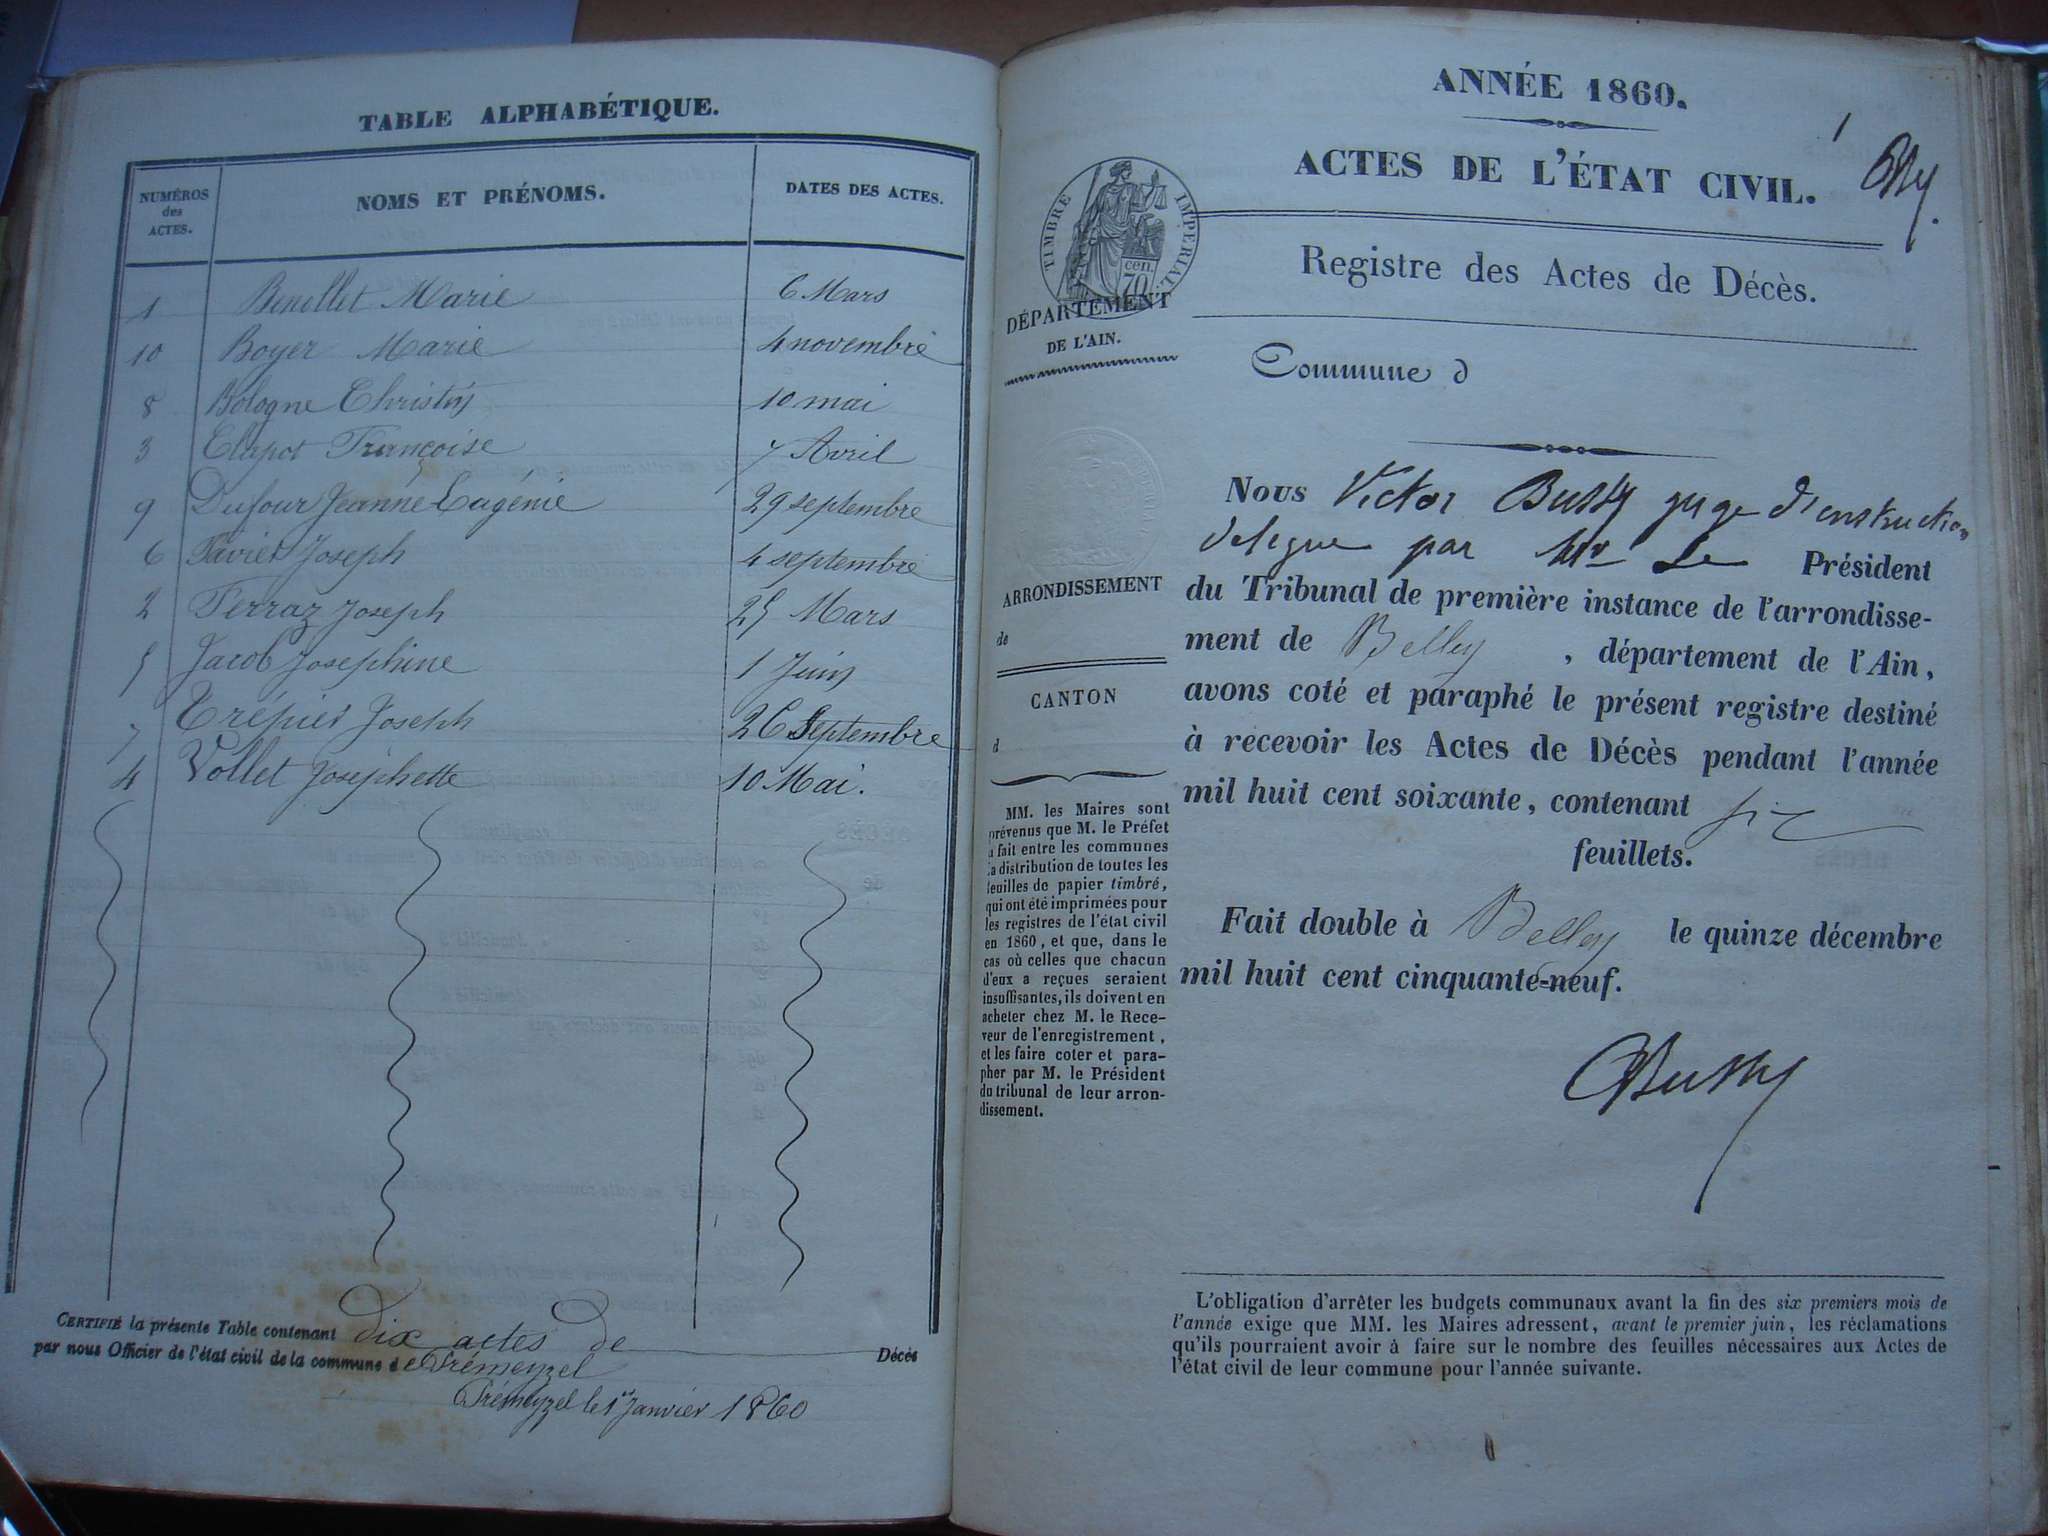 TABLE ALPHABÉTIQUE.
NUMÉROS des ACTES. NOMS ET PRÉNOMS. DATES DES ACTES.
1 Benollet Marie 6 Mars
10 Boyer Marie 4 novembre
8 Bologne Christin 10 mai
3 Clapot Françoise 7 Avril
9 Dufour Jeanne Eugénie 29 septembre
6 Favier Joseph 4 septembre
2 Ferraz Joseph 25 Mars
5 Jacob Josephine 1 Juin
7 Trépier Joseph 26 Septembre
4 Vollet Josephette 10 Mai.
CERTIFIÉ la présente Table contenant dix actes de Décès
par nous Officier de l'état civil de la commune de Prémeyzel
Prémeyzel le 1er Janvier 1860
ANNÉE 1860.
1
ACTES DE L'ÉTAT CIVIL.
TIMBRE IMPERIAL.
cen.
70
Registre des Actes de Décès.
DÉPARTEMENT
DE L'AIN.
Commune d
ARRONDISSEMENT
de
CANTON
d
MM. les Maires sont
prévenus que M. le Préfet
a fait entre les communes
la distribution de toutes les
feuilles de papier timbré,
qui ont été imprimées pour
les registres de l'état civil
en 1860, et que, dans le
cas où celles que chacun
d'eux a reçues seraient
insuffisantes, ils doivent en
acheter chez M. le Rece-
veur de l'enregistrement,
et les faire coter et para-
pher par M. le Président
du tribunal de leur arron-
dissement.
Nous Victor Bussy juge d'instruction
delegue par Mr Le Président
du Tribunal de première instance de l'arrondisse-
ment de Belley, département de l'Ain,
avons coté et paraphé le présent registre destiné
à recevoir les Actes de Décès pendant l'année
mil huit cent soixante, contenant six
feuillets.
Fait double à Belley le quinze décembre
mil huit cent cinquante-neuf.
VBussy
L'obligation d'arrêter les budgets communaux avant la fin des six premiers mois de
l'année exige que MM. les Maires adressent, avant le premier juin, les réclamations
qu'ils pourraient avoir à faire sur le nombre des feuilles nécessaires aux Actes de
l'état civil de leur commune pour l'année suivante.